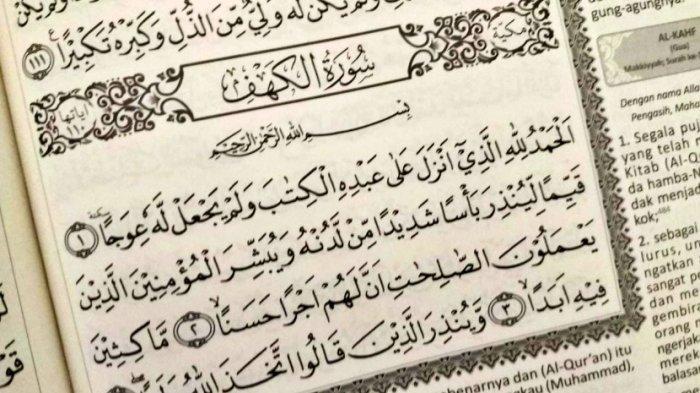 لَّمْ يَكُنْ لَّهٗ وَلِيٌّ مِّنَ الذُّلِّ وَكَبِّرْهُ تَكْبِيْرًا ١١١
مكية
سُورَةُ الْكَهْفِ
اٰيَاتُهَا ١١٠
بِسْمِ اللّٰهِ الرَّحْمٰنِ الرَّحِيْمِ
اَلْحَمْدُ لِلّٰهِ الَّذِيْٓ اَنْزَلَ عَلٰى عَبْدِهِ الْكِتٰبَ وَلَمْ يَجْعَلْ لَّهٗ عِوَجًا ١
قَيِّمًا لِّيُنْذِرَ بَأْسًا شَدِيْدًا مِّنْ لَّدُنْهُ وَيُبَشِّرَ الْمُؤْمِنِيْنَ الَّذِيْنَ
يَعْمَلُوْنَ الصّٰلِحٰتِ اَنَّ لَهُمْ اَجْرًا حَسَنًا ٢ مَّاكِثِيْنَ
فِيْهِ اَبَدًا ٣ وَّيُنْذِرَ الَّذِيْنَ قَالُوا اتَّخَذَ اللّٰهُ وَلَدًا
gung-agungnya.
AL-KAHF
(Gua)
Makkiyyah; Surah ke-
Dengan nama Alla
Pengasih, Maha
1. Segala puj
yang telah r
Kitab (Al-Q
da hamba-N
dak menjad
kok;484
2. sebagai
lurus, u
ngatkan
sangat p
dan me
gembira
orang
ngerjak
mereka
balasan
benarnya dan (Al-Qur'an) itu
gkau (Muhammad),